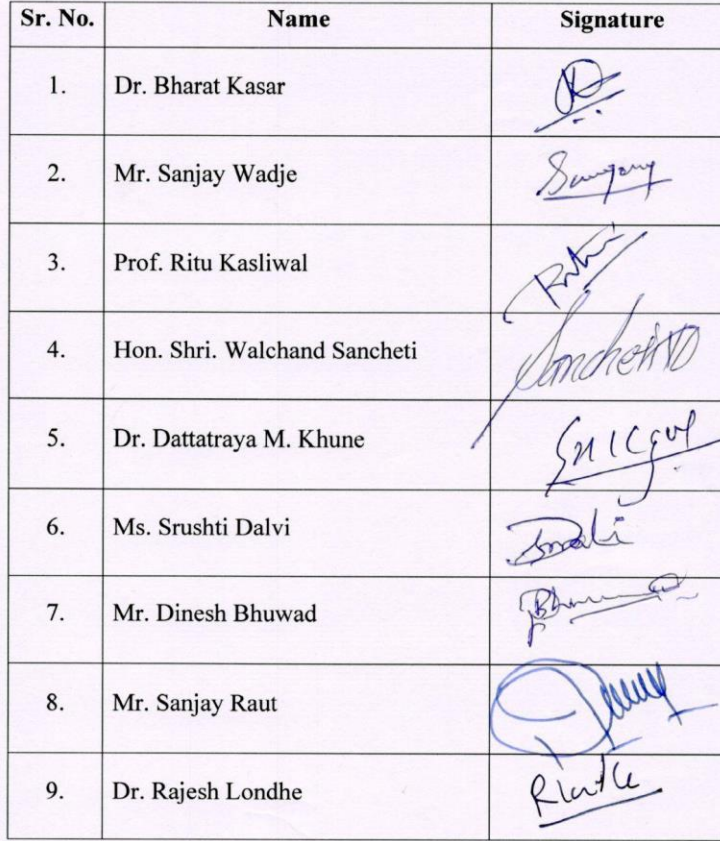 Sr. No. Name Signature
1. Dr. Bharat Kasar
2. Mr. Sanjay Wadje Sanjay
3. Prof. Ritu Kasliwal
4. Hon. Shri. Walchand Sancheti
5. Dr. Dattatraya M. Khune
6. Ms. Srushti Dalvi
7. Mr. Dinesh Bhuwad
8. Mr. Sanjay Raut
9. Dr. Rajesh Londhe